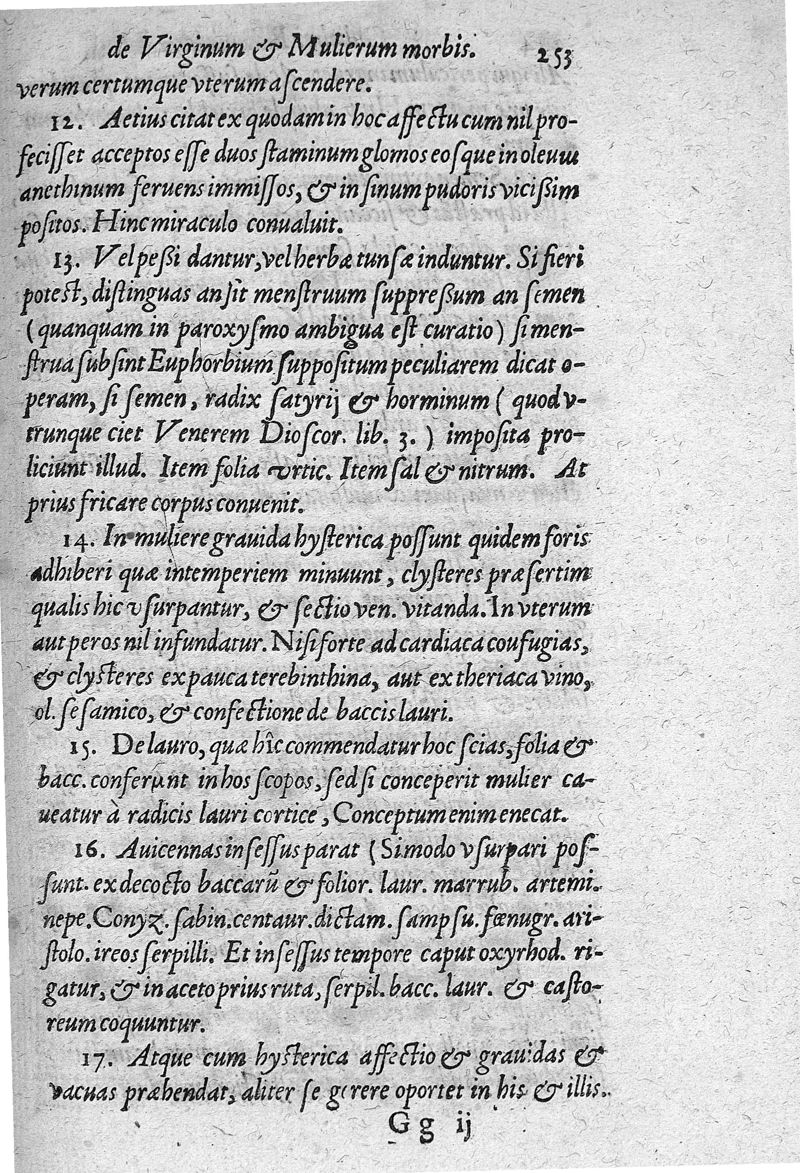 de Virginum & Mulierum morbis. 253
verum certumque vterum ascendere.
12. Aetius citat ex quodam in hoc affectu cum nil pro-
fecisset acceptos esse duos staminum glomos eosque in oleum
anethinum feruens immissos, & in sinum pudoris vicißim
positos. Hinc miraculo conualuit.
13. Vel peßi dantur, vel herbæ tunsæ induntur. Si fieri
potest, distinguas an sit menstruum suppreßum an semen
(quanquam in paroxysmo ambigua est curatio) si men-
strua subsint Euphorbium suppositum peculiarem dicat o-
peram, si semen, radix satyrij & horminum ( quod v-
trunque ciet Venerem Dioscor. lib. 3. ) imposita pro-
liciunt illud. Item folia vrtic. Item sal & nitrum. At
prius fricare corpus conuenit.
14. In muliere grauida hysterica possunt quidem foris
adhiberi quæ intemperiem minuunt, clysteres præsertim
qualis hic vsurpantur, & sectio ven. vitanda. In vterum
aut per os nil infundatur. Nisi forte ad cardiaca coufugias,
& clysteres ex pauca terebinthina, aut ex theriaca vino,
ol. sesamico, & confectione de baccis lauri.
15. De lauro, quæ hîc commendatur hoc scias, folia &
bacc. conferunt in hos scopos, sed si conceperit mulier ca-
ueatur à radicis lauri cortice, Conceptum enim enecat.
16. Auicennas insessus parat (Si modo vsurpari pos-
sunt. ex decocto baccarũ & folior. laur. marrub. artemi.
nepe. Conyz. sabin. centaur. dictam. sampsu. fœnugr. ari-
stolo. ireos serpilli. Et insessus tempore caput oxyrhod. ri-
gatur, & in aceto prius ruta, serpil. bacc. laur. & casto-
reum coquuntur.
17. Atque cum hysterica affectio & grauidas &
vacuas præhendat, aliter se gerere oportet in his & illis.
G g ij